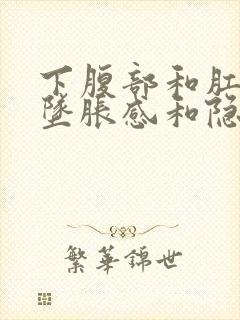 下腹部和肛
坠胀感和隐
繁华锦世